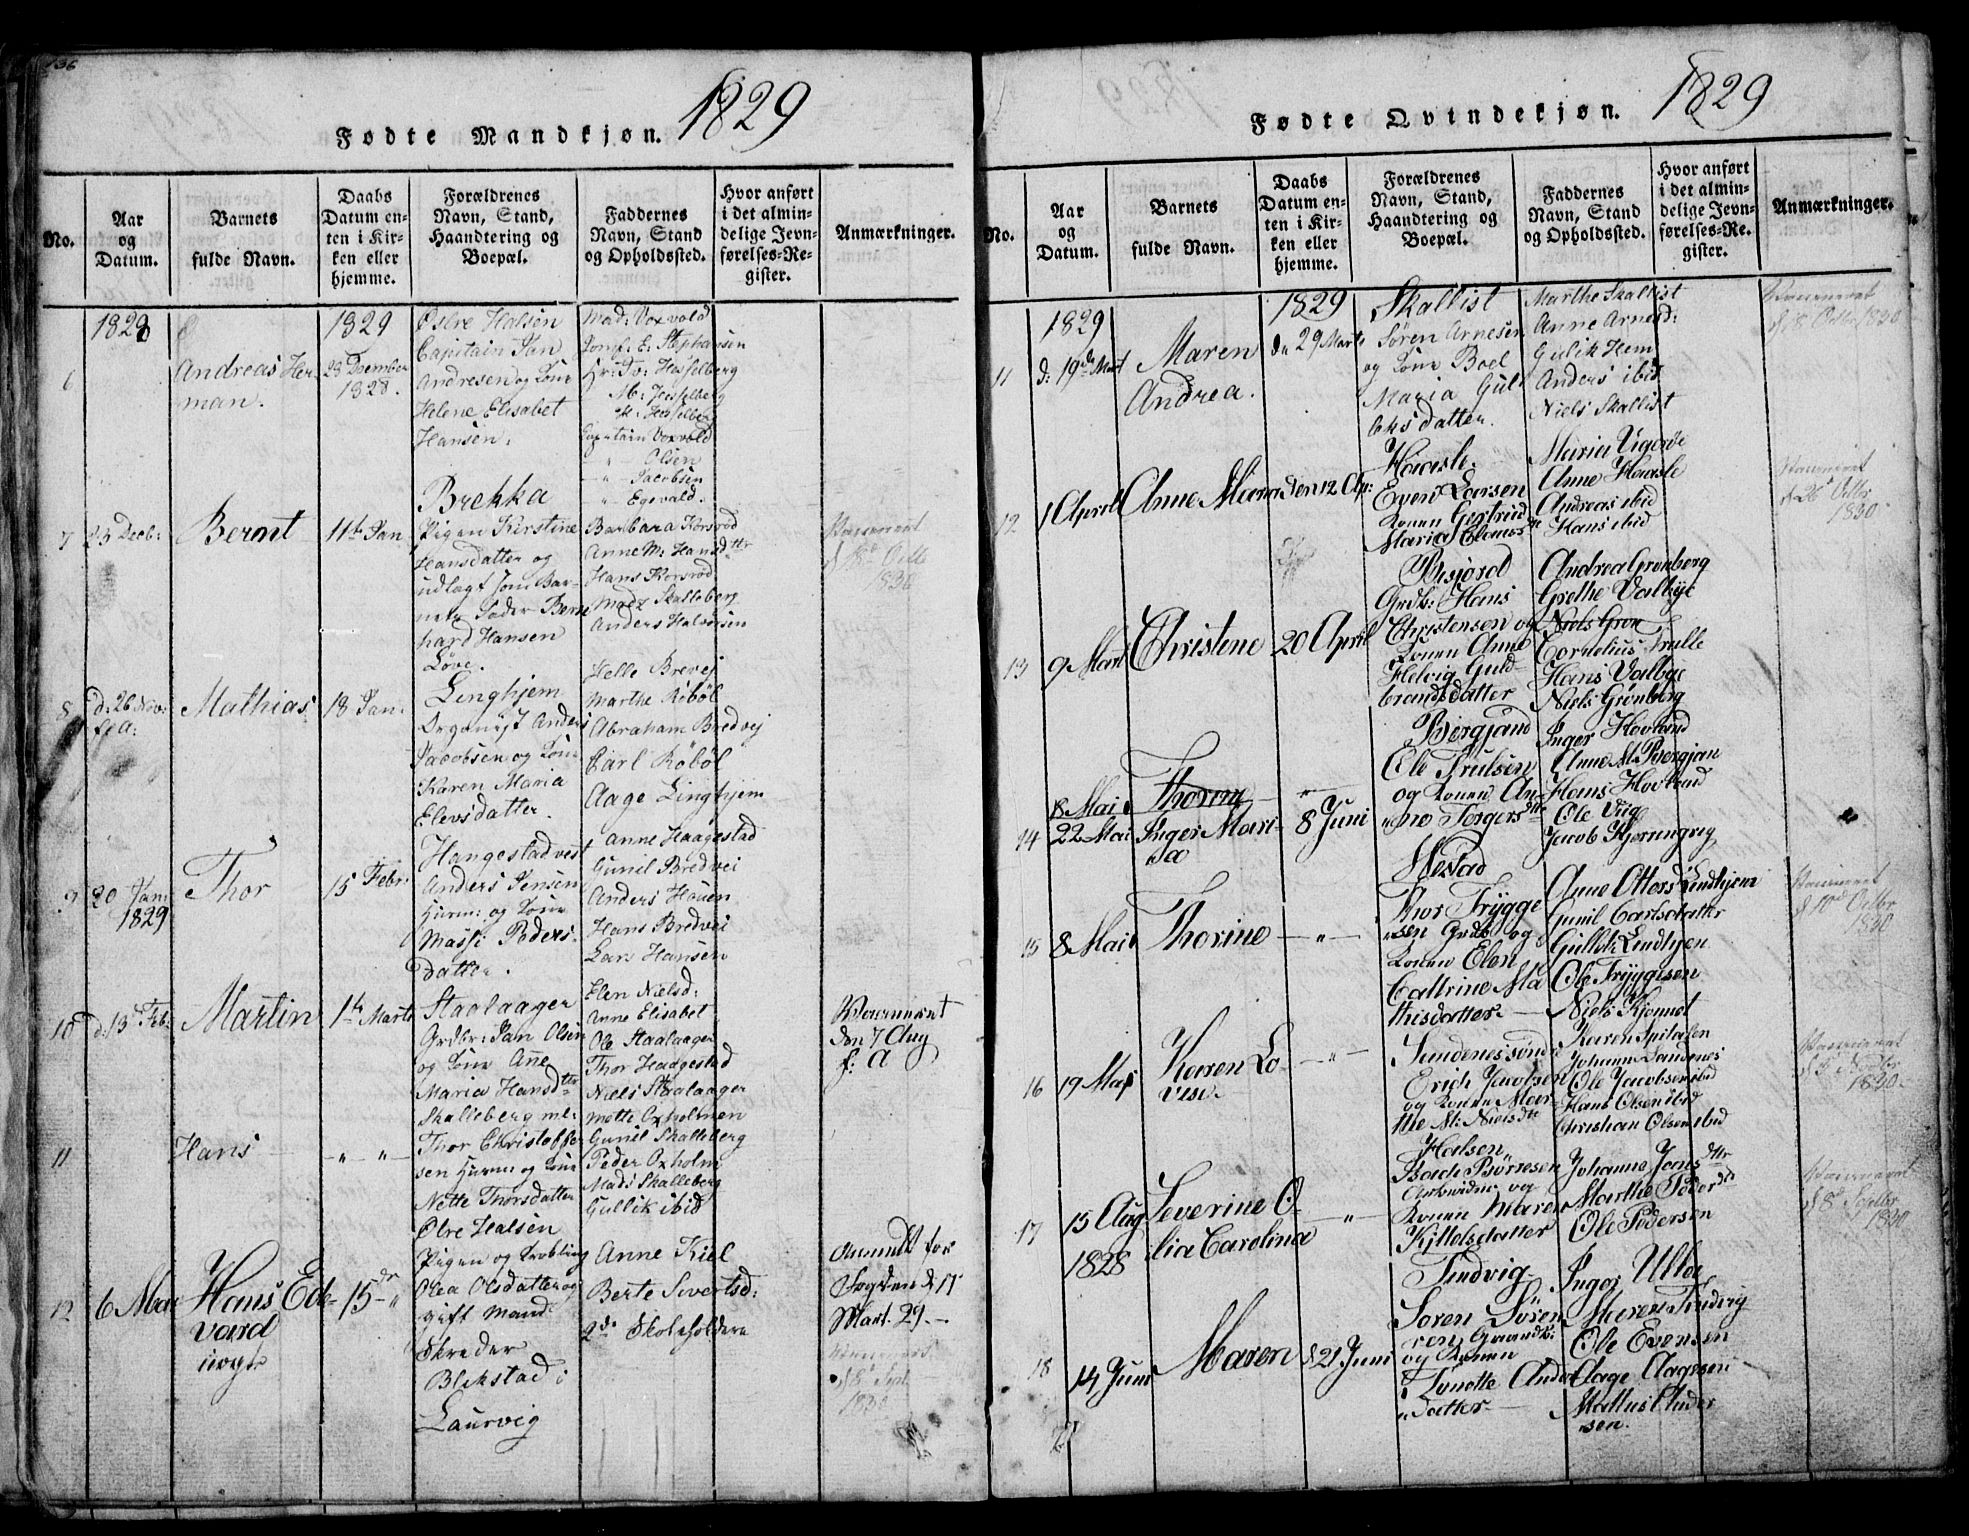 136
1829
Fødte Mandkjøn.
No.
Aar
og
Datum.
Barnets
fulde Navn.
Daabs
Datum en-
ten i Kir-
ken eller
hjemme.
Forældrenes
Navn, Stand,
Haandtering og
Boepæl.
Faddernes
Navn, Stand
og Opholdssted.
Hvor anført
i det almin-
delige Jevn-
førelses-Re-
gister.
Anmærkninger.
6
1829
Andreas Her-
man.
1829
28 December
1828.
Østre Halsen
Capitain Jan
Andresen og Kone
Helene Elisabet
Hansen.
Mad: Voxvold
Jomf: E: Stephansen
Hr: Tv: Hesselberg
M: Hesselberg
H: Hesselberg
Capitain Voxvold
" Olsen
" Jacobsen
" Egevald.
7
23 Decb:
Bernt
11te Jan
Brekka
Pigen Kirstine
Hansdatter og
udlagt som Bar-
nets Fader Bern-
hard Hansen
Løve.
Barbara Korsrød
Anne M: Hansdttr
Hans Korsrød
Madz Skalleberg
Anders Halvorsen
Vaccineret
1830
8
d: 26 Nov:
f: A:
Mathias
18 Jan.
Linghjem
Anders
Jacobsen og Kone
Karen Maria
Elevsdatter.
Helle Brevej
Marthe Røbøl
Abraham Bredvej
Carl Røbøl
Aage Linghjem
9
20 Jan
1829
Thor
15 Febr:
Haugestad vest
Anders Jensen
Huusm: og Kone
Massi Peders-
datter.
Anne Haagestad
Gunil Bredvei
Anders Houen
Hans Bredvei
Lars Hansen
10
d: 13 Feb:
Martin
1te Marts
Staalaager
Grdbr: Jan Olsen
og Kone Ane
Maria Hansdttr
Elen Nielsd:
Anne Elisabet
Ole Staalaager
Thor Haagestad
Niels Staalaager
Vaccineret
den 7 Aug
f: A
11
Hans
" "
Skalleberg
Thor Christoffer-
sen Huusm: og Kone
Nette Thorsdatter
Mette Oxholmen
Gunil Skalleberg
Peder Oxholm
Mads Skalleberg
Gullik ibid
12
6 Mar
Hans Ed-
vard
uægte
15de "
Østre Halsen
Pigen og
Olea Olsdatter og
gift Mand
Skreder
Blikstad i
Laurvig
Anne Kiel
Berte Sivertsd:
2de Skoleholdere
Anmeldt for
Fogden d: 11
Mart. 29.
1830
1829
Fødte Qvindekjøn.
No.
Aar
og
Datum.
Barnets
fulde Navn.
Daabs
Datum en-
ten i Kir-
ken eller
hjemme.
Forældrenes
Navn, Stand,
Haandtering og
Boepæl.
Faddernes
Navn, Stand
og Opholdssted.
Hvor anført
i det almin-
delige Jevn-
førelses-Re-
gister.
Anmærkninger.
11
1829
d: 19de Mart
Maren
Andrea.
1829
den 29 Marts
Skallist
Søren Arnesen
og Kone Boel
Maria Gul-
leksdatter.
Marthe Skallist
Anne Arnesd:
Gulik Hem
Anders ibid
Niels Skallist
Vaccineret
d 8 Octbr 1830
12
1 April
Anne Maria
den 12 Apr:
Haasle.
Even Larsen
Konen Gertrud
Maria
Maria Ugerøe
Anne Haasle
Andreas ibid
Hans ibid
Vaccineret
d 26 Octbr
1830
13
9 Mart
Christene
20 April
Bisjord
Grdb: Hans
Christensen og
Konen Anne
Helvig Guld-
brandsdatter
Andrea Grønberg
Grethe Valbye
Niels Grøn
Cornelius Trulle
Hans Valbye
Niels Grønberg
14
8 Mai
22 Mai
Thorine
Inger Mari-
a
"
8 Juni
Bergjand
Ole Trulsen
og Konen An-
ne Torgersdtt
Inger Hovland
Anne M. Bergjan
Hans Hovland
Ole Viig
Jacob Kjørningvig
15
8 Mai
Thorine
"
Hestad
Thor Trygge-
sen Grdb og
Konen Elen
Cathrine Ma-
thisdatter
Anne Ottersd Lindhjem
Gunil Carlsdatter
Gullik Lindhjem
Ole Tryggesen
Niels Kjønnet
Vaccineret
d 10 Octbr
1830
16
19 Mai
Karen Lo-
vise
"
Sundenes søndr
Erich Jacobsen
og Konen Mar-
the M: Nielsdtt
Karen Spitalen
Johanne Sundenes
Ole Jacobsen ibid
Hans Olsen ibid
Christian Olsen ibid
Vaccineret
1830
17
15 Aug
1828
Severine O-
lia Carolina
"
Halsen
Børresen
Arbeider og
Konen Maren
Kittelsdatter
Johanne Jansdttr
Marthe Pedersdtt
Ole Pedersen
Vaccineret
1830
18
14 Juni
Maren
d 21 Juni
Tindvig
Søren Søren-
sen Gaardb:
og Konen
Lonotte Anders-
datter
Inger Ulla
Maren Tindvig
Ole Evensen
Aage Aagesen
Mathias Ander
sen.